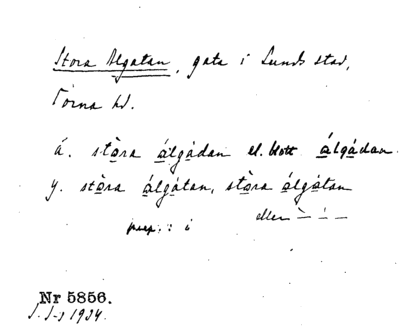 Stora Algatan, gata i Lunds stad,
Torna hd.
á. stὰra álgádan el. blott álgádan.
y. stὰra álgátan, stὰra álgátan
prep.: i eller ̀— ́— —
Nr 5856.
1934.